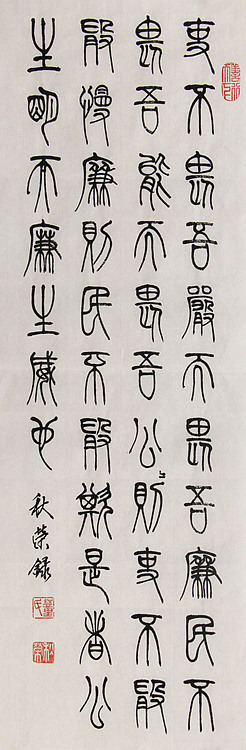 吏不畏吾嚴而畏吾廉民不
畏吾能而畏吾公〻則吏不敢
敢慢廉則民不敢欺是者公
生明而廉生威也
秋榮錄